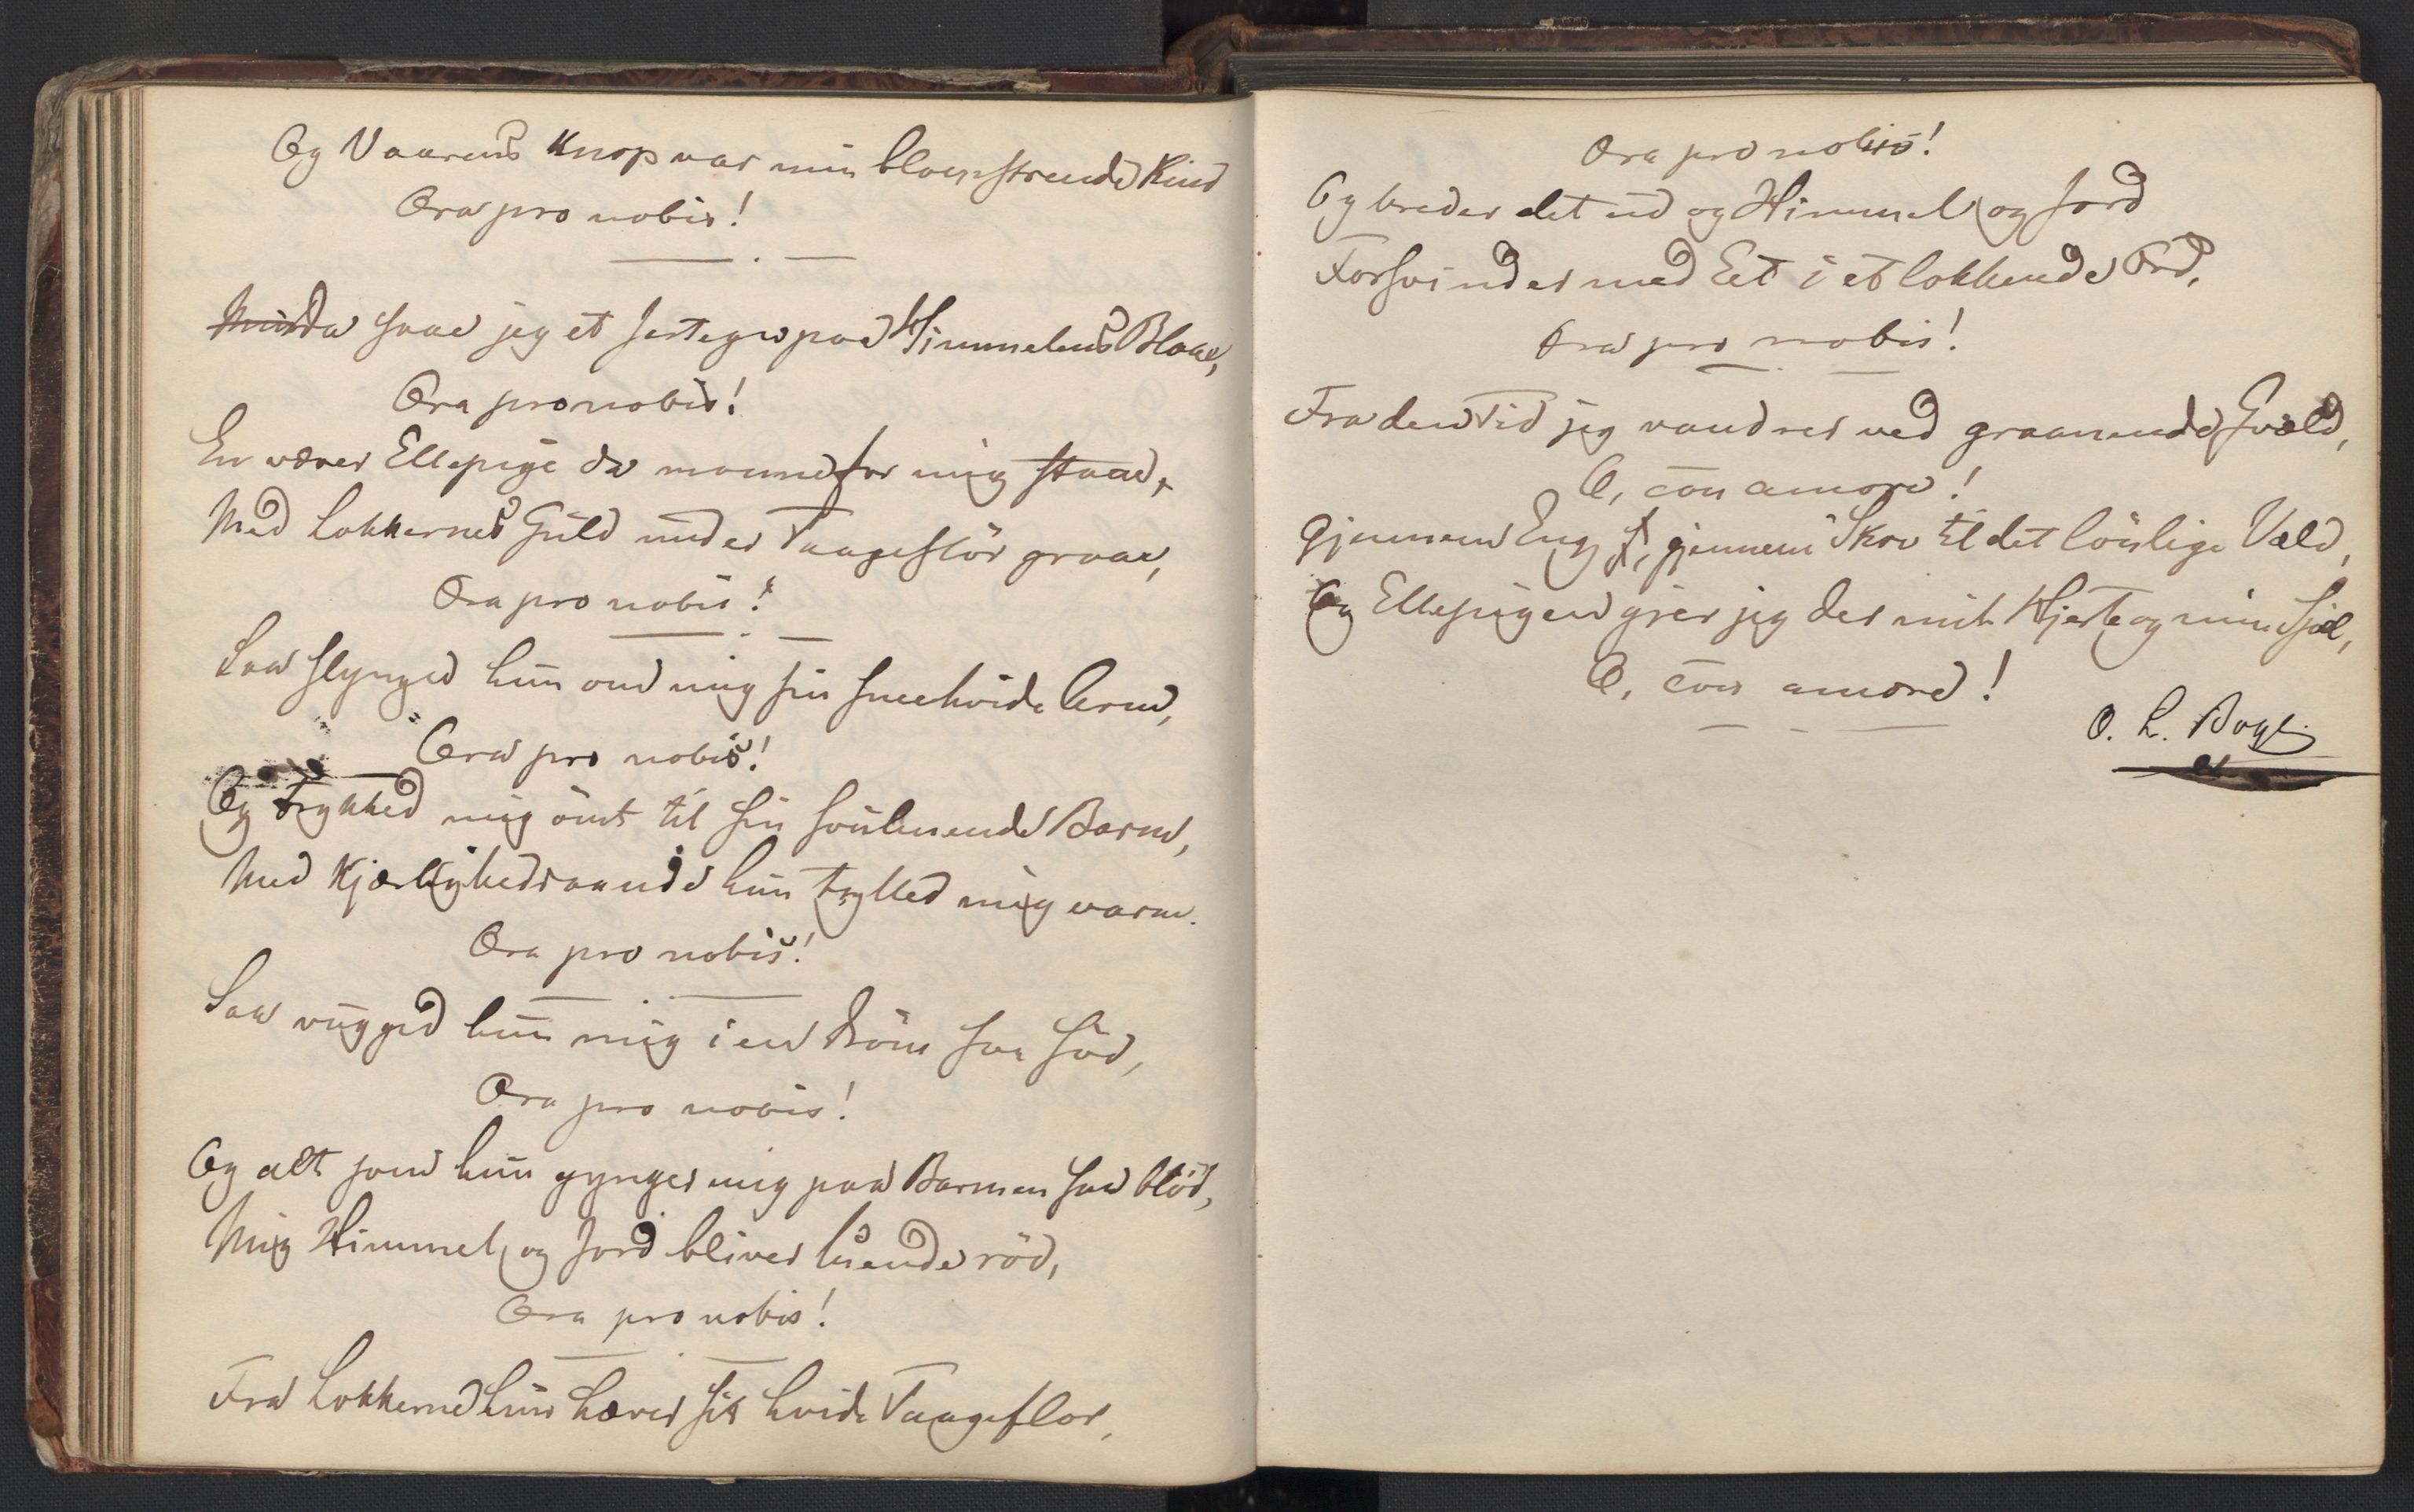 Og Vaarens Knop var min blomstrende Kind
Ora pro nobis!
Da saae jeg et Jertegn paa Himmelens Blaae,
Ora pro nobis!
En væver Ellepige da monne for mig staae,
Med Lokkernes Guld under Taageflör graae,
Ora pro nobis!
Saa slynged hun om mig sin sneehvide Arm,
Ora pro nobis!
Og trykked mig ömt til sin svulmende Barm,
Med Kjærlighedsaande hun trylled mig varm.
Ora pro nobis!
Saa vugged hun mig i en Dröm saa söd,
Ora pro nobis!
Og alt som hun gynger mig paa Barmen saa blöd,
Mig Himmel og Jord bliver luende röd,
Ora pro nobis!
Fra Lokkerne hun hæver sit hvide Taageflor,
Ora pro nobis!
Og breder det ud og Himmel og Jord
Forsvinder med Eet i et lokkende Ord,
Ora pro nobis!
Fra den Tid jeg vandrer ved graanende Qvæld,
O, con amore!
Gjennem Eng, gjennem Skov til det lönlige Væld,
Og Ellepigen gier jeg der mit Hjerte og min Sjæl,
O, con amore!
O. L.